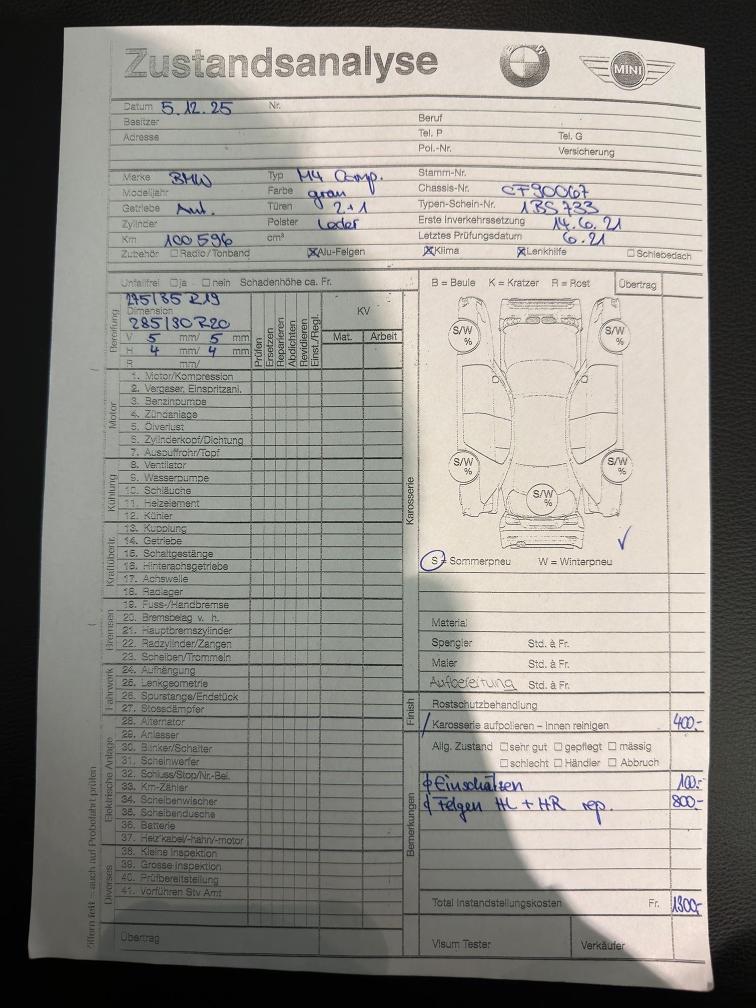 Zustandsanalyse
MINI
Datum 5.12.25 Nr.
Besitzer Beruf
Adresse Tel. P Tel. G
Pol.-Nr. Versicherung
Marke BMW Typ M4 Comp. Stamm-Nr.
Modelljahr Farbe grau Chassis-Nr. CF90067
Getriebe Aut. Türen 2+1 Typen-Schein-Nr. 1BS733
Zylinder Polster Leder Erste Inverkehrssetzung 14.6.21
Km 100596 cm³ Letztes Prüfungsdatum 6.21
Zubehör Radio/Tonband Alu-Felgen Klima Lenkhilfe Schiebedach
Unfallfrei ja nein Schadenhöhe ca. Fr.
B = Beule K = Kratzer R = Rost Übertrag
275/35 R19
Dimension
285/30 R20
V 5 mm/ 5 mm
H 4 mm/ 4 mm
R mm/
Bereifung
Prüfen
Ersetzen
Reparieren
Abdichten
Revidieren
Einst./Regl.
KV
Mat. Arbeit
Motor
1. Motor/Kompression
2. Vergaser, Einspritzanl.
3. Benzinpumpe
4. Zündanlage
5. Ölverlust
6. Zylinderkopf/Dichtung
7. Auspuffrohr/Topf
Kühlung
8. Ventilator
9. Wasserpumpe
10. Schläuche
11. Heizelement
12. Kühler
Kraftübertr.
13. Kupplung
14. Getriebe
15. Schaltgestänge
16. Hinterachsgetriebe
17. Achswelle
18. Radlager
Bremsen
19. Fuss-/Handbremse
20. Bremsbelag v. h.
21. Hauptbremszylinder
22. Radzylinder/Zangen
23. Scheiben/Trommeln
Fahrwerk
24. Aufhängung
25. Lenkgeometrie
26. Spurstange/Endstück
27. Stossdämpfer
Elektrische Anlage
28. Alternator
29. Anlasser
30. Blinker/Schalter
31. Scheinwerfer
32. Schluss/Stop/Nr.-Bel.
33. Km-Zähler
34. Scheibenwischer
35. Scheibendusche
36. Batterie
37. Heiz'kabel/-hahn/-motor
Diverses
38. Kleine Inspektion
39. Grosse Inspektion
40. Prüfbereitstellung
41. Vorführen Stv Amt
Übertrag
Ziffern fett = auch auf Probefahrt prüfen
Karosserie
S/W %
S/W %
S/W %
S/W %
S/W %
S = Sommerpneu W = Winterpneu
Material
Spengler Std. à Fr.
Maler Std. à Fr.
Aufbereitung Std. à Fr.
Finish
Rostschutzbehandlung
Karosserie aufpolieren – Innen reinigen 400.-
Allg. Zustand sehr gut gepflegt mässig
schlecht Händler Abbruch
Bemerkungen
Einschätzen 100.-
Felgen HL + HR rep. 800.-
Total Instandstellungskosten Fr. 1300.-
Visum Tester Verkäufer